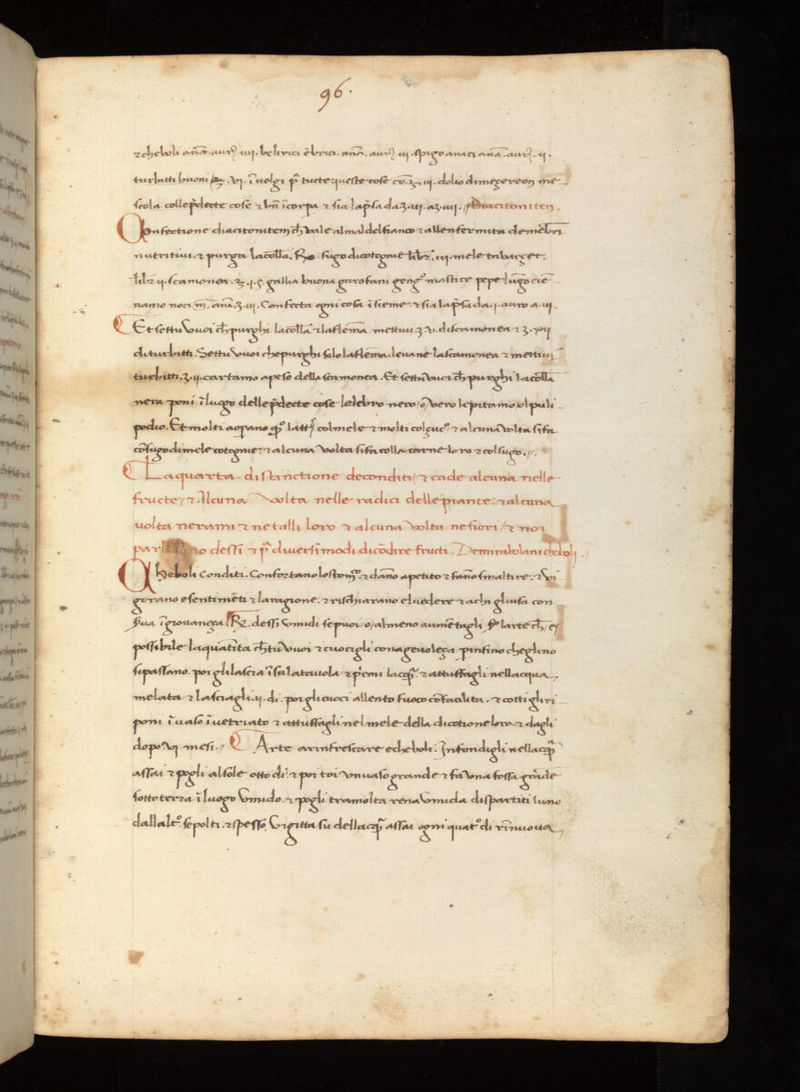 96.
⁊ cheboli anā. aurꝫ iiij. belirici ēbrici. anā. aurꝫ iij. spigo anaci anā. aurꝫ. ij.
turbitti buoni ʒ. vj. īuolgi p̄ tucte queste cose cō. ʒ. iij. dolio dimegereon me-
scola colle p̄decte cose ⁊ bn̄ īcorpa ⁊ sia la p̄sa da ʒ. iij. a ʒ. iiij. Diacitoniten.
Confectione diacitonitem ch̄ vale al mal del fianco ⁊ alle nfermita de mēbri
nutritiui. ⁊ purga la coll̄a. R̄ sugo di cotogne libr̄. iij. mele tabarçet.
libr̄ ij. scamonea. ʒ. j. gallia buona garofani geng̊ mastice pepe lūgo cie-
namo noci m̄. anā. ʒ. iij. Confecta ogni cosa īsieme. ⁊ sia la p̄sa da. j. auro a. iij.
Et settu vuoi ch̄ purghi la coll̄a ⁊ la flēma. mettiui ʒ v. di scamonea ⁊ ʒ. vij
di turbitti. Settu vuoi che purghi solo la flēma. leuane la scamonea ⁊ mettiui
turbitti. ʒ. ij. cartamo a peso della scamonea. Et settu vuoi ch̄ purghi la coll̄a
nera poni ī luogo delle p̄decte cose lelebro nero / o vero lepitamo ol puli-
podio. Et molti aopano q̄sto lattꝫ col mele ⁊ molti col çucꝫ ⁊ alcuna volta si fa
cōsugo di mele cotogne / ⁊ alcuna volta si fa colla carne loro ⁊ col sugo. //.
La quarta distinctione deconditi / ⁊ cade alcuna nelle
fructe / ⁊ Alcuna Volta nelle radici delle piante. ⁊ alcuna
uolta nerami ⁊ ne talli loro ⁊ alcuna volta ne fiori / ⁊ noi
par no dessi ⁊ p̄ diuersi modi di cōdire fructi. De mirabolani cheboli.
Cheboli Conditi. Confortano lo stom̊ ⁊ dāno apetito ⁊ fano smaltire. ⁊ vi
gorano e sentimēti ⁊ la ragione. ⁊ rischiarano el uedere ⁊ a chi gliusa con-
s̄ua ī giouaneça. R̄. dessi vmidi se puoi / o / almeno aumētagli p̄ larte ch̄ e
possibile la quātita ch̄ tu vuoi ⁊ cuocigli con ageuoleça pinfino che glino
si passano. poi gli lascia ī su la tauola ⁊ p̄mi lacq̄. ⁊ attuffagli nell acqua
melata ⁊ lasciagli. ij. di. poi gli cuoci allento fuoco cō facilita. ⁊ cotti gli ri
poni ī uaso īuetriato ⁊ attuffagli nel mele della dicotione loro. ⁊ dagli
dopo vj mesi. // Arte a rinfrescare e cheboli. Infondigli nell acq̄
assai ⁊ pogli al sole otto di. ⁊ poi toi vn uaso grande ⁊ fa vna fossa grāde
sotto terra ī luogo vmido. ⁊ pogli tra molta rena vmida dispartiti luno
dall alt̊ sepolti. ⁊ spesso vi gitta su dell acq̄ assai ogni quat̊ di rīnuoua /